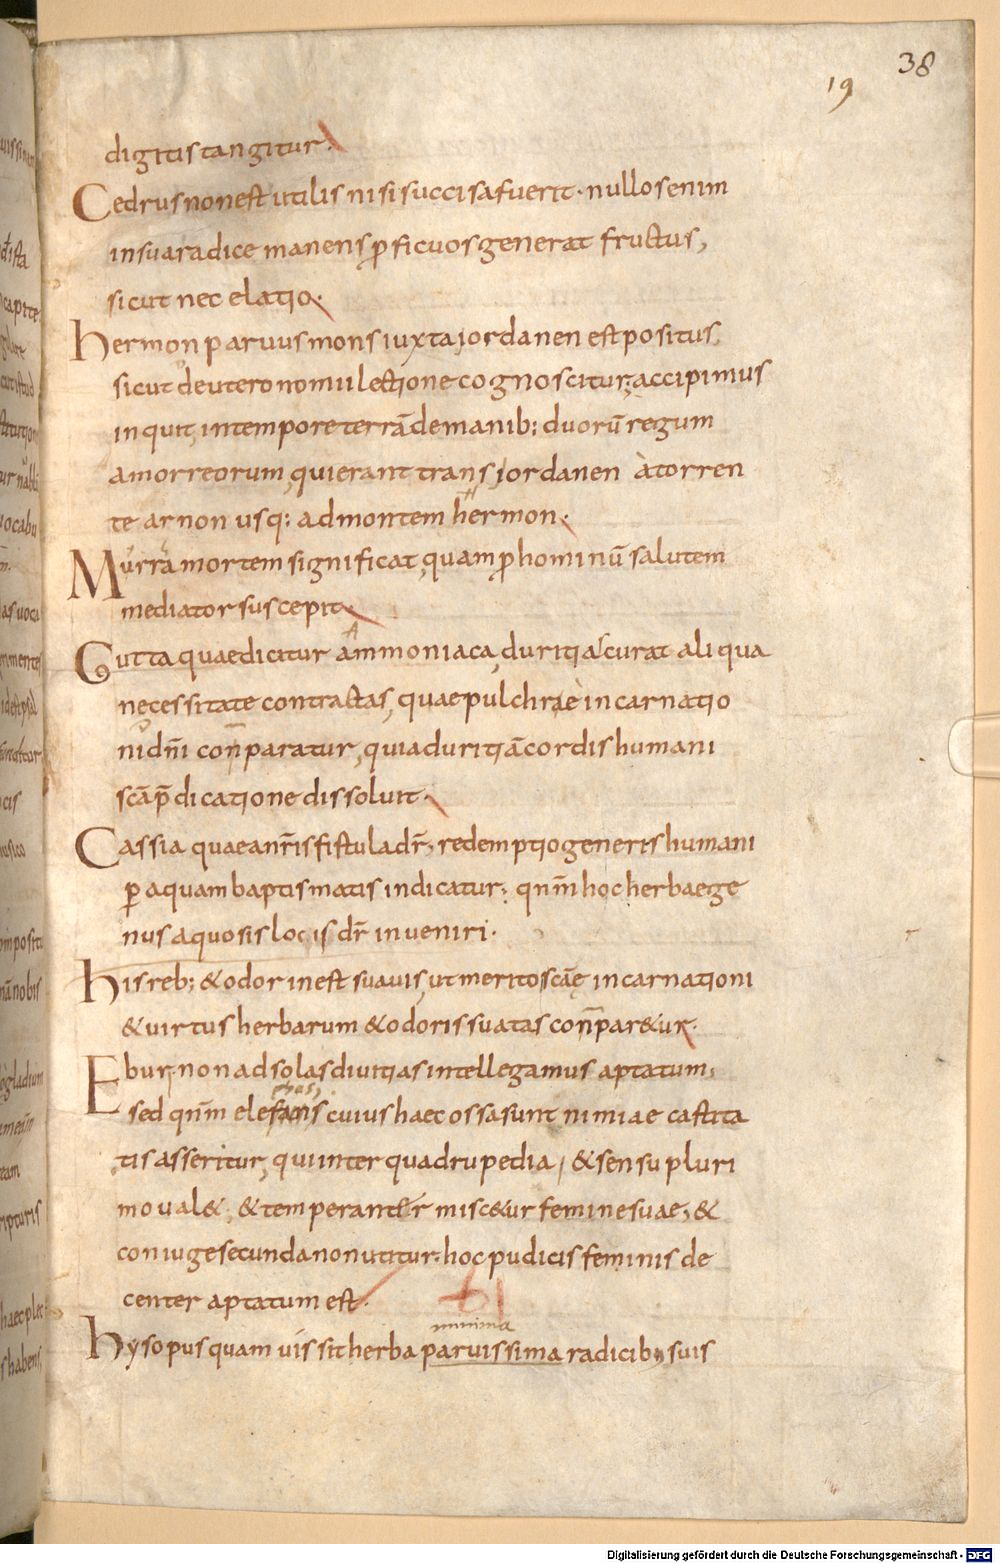 38
19
digitis tangitur.
Cedrus non est utilis nisi succisa fuerit · nullos enim
in sua radice manens ꝓficuos generat fructus,
sicut nec elatio.
hermon paruus mons iuxta jordanen est positus,
sicut deuteronomii lectione cognoscitur; accipimus
inquit, in tempore terrā de manib; duorū regum
amorreorum, qui erant trans jordanen à torren
te arnon usq; ad montem hermon.
Murra mortem significat, quam ꝓ hominū salutem
mediator suscepit.
Gutta quae dicitur ammoniaca, duritias curat aliqua
necessitate contractas, quae pulchrae incarnatio
ni dn̄i conparatur, quia duritiā cordis humani
sc̄a p̄dicatione dissoluit.
Cassia quae a nr̄is fistula dr̄, redemptio generis humani
ꝑ aquam baptismatis indicatur; qn̄m hoc herbae ge
nus aquosis locis dr̄ inueniri.
his reb; & odor inest suauis, ut merito sc̄ae incarnationi
& uirtus herbarum & odoris suauitas conpar&ur.
Ebur non ad solas diuitias intellegamus aptatum;
phas,
sed qn̄m elefans cuius haec ossa sunt nimiae castita
tis asseritur, qui inter quadrupedia, & sensu pluri
mo ual&; & temperanter misc&ur femine suae; &
coniuge secunda non utitur; hoc pudicis feminis de
center aptatum est.
minima
hysopus quamuis sit herba paruissima radicib; suis
Digitalisierung gefördert durch die Deutsche Forschungsgemeinschaft - DFG